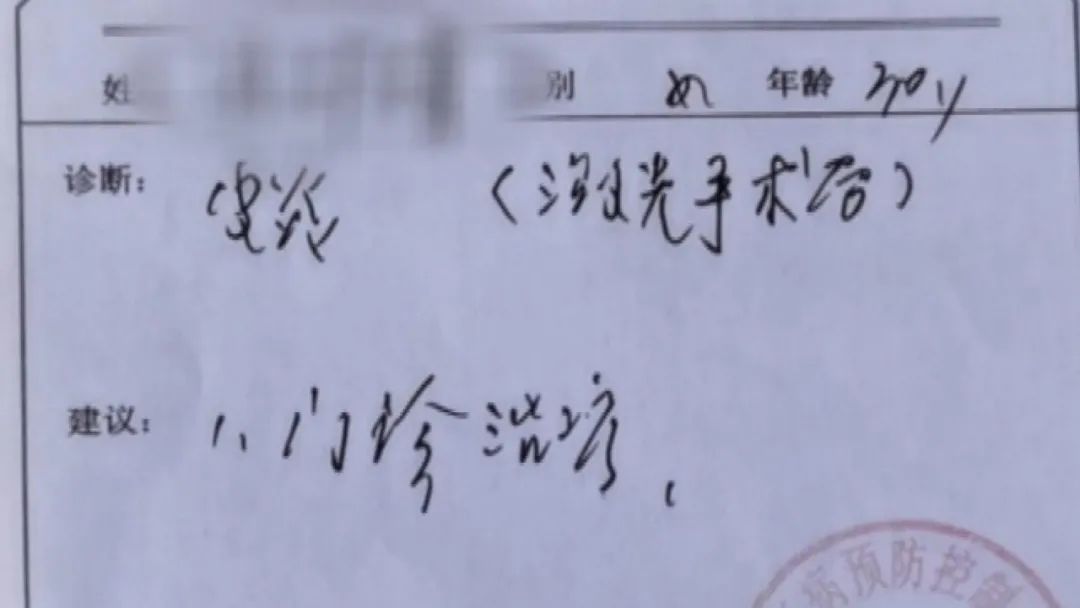 姓 别 女 年龄 30y
诊断: (激光手术后)
建议: 1、门诊治疗.
病预防控制